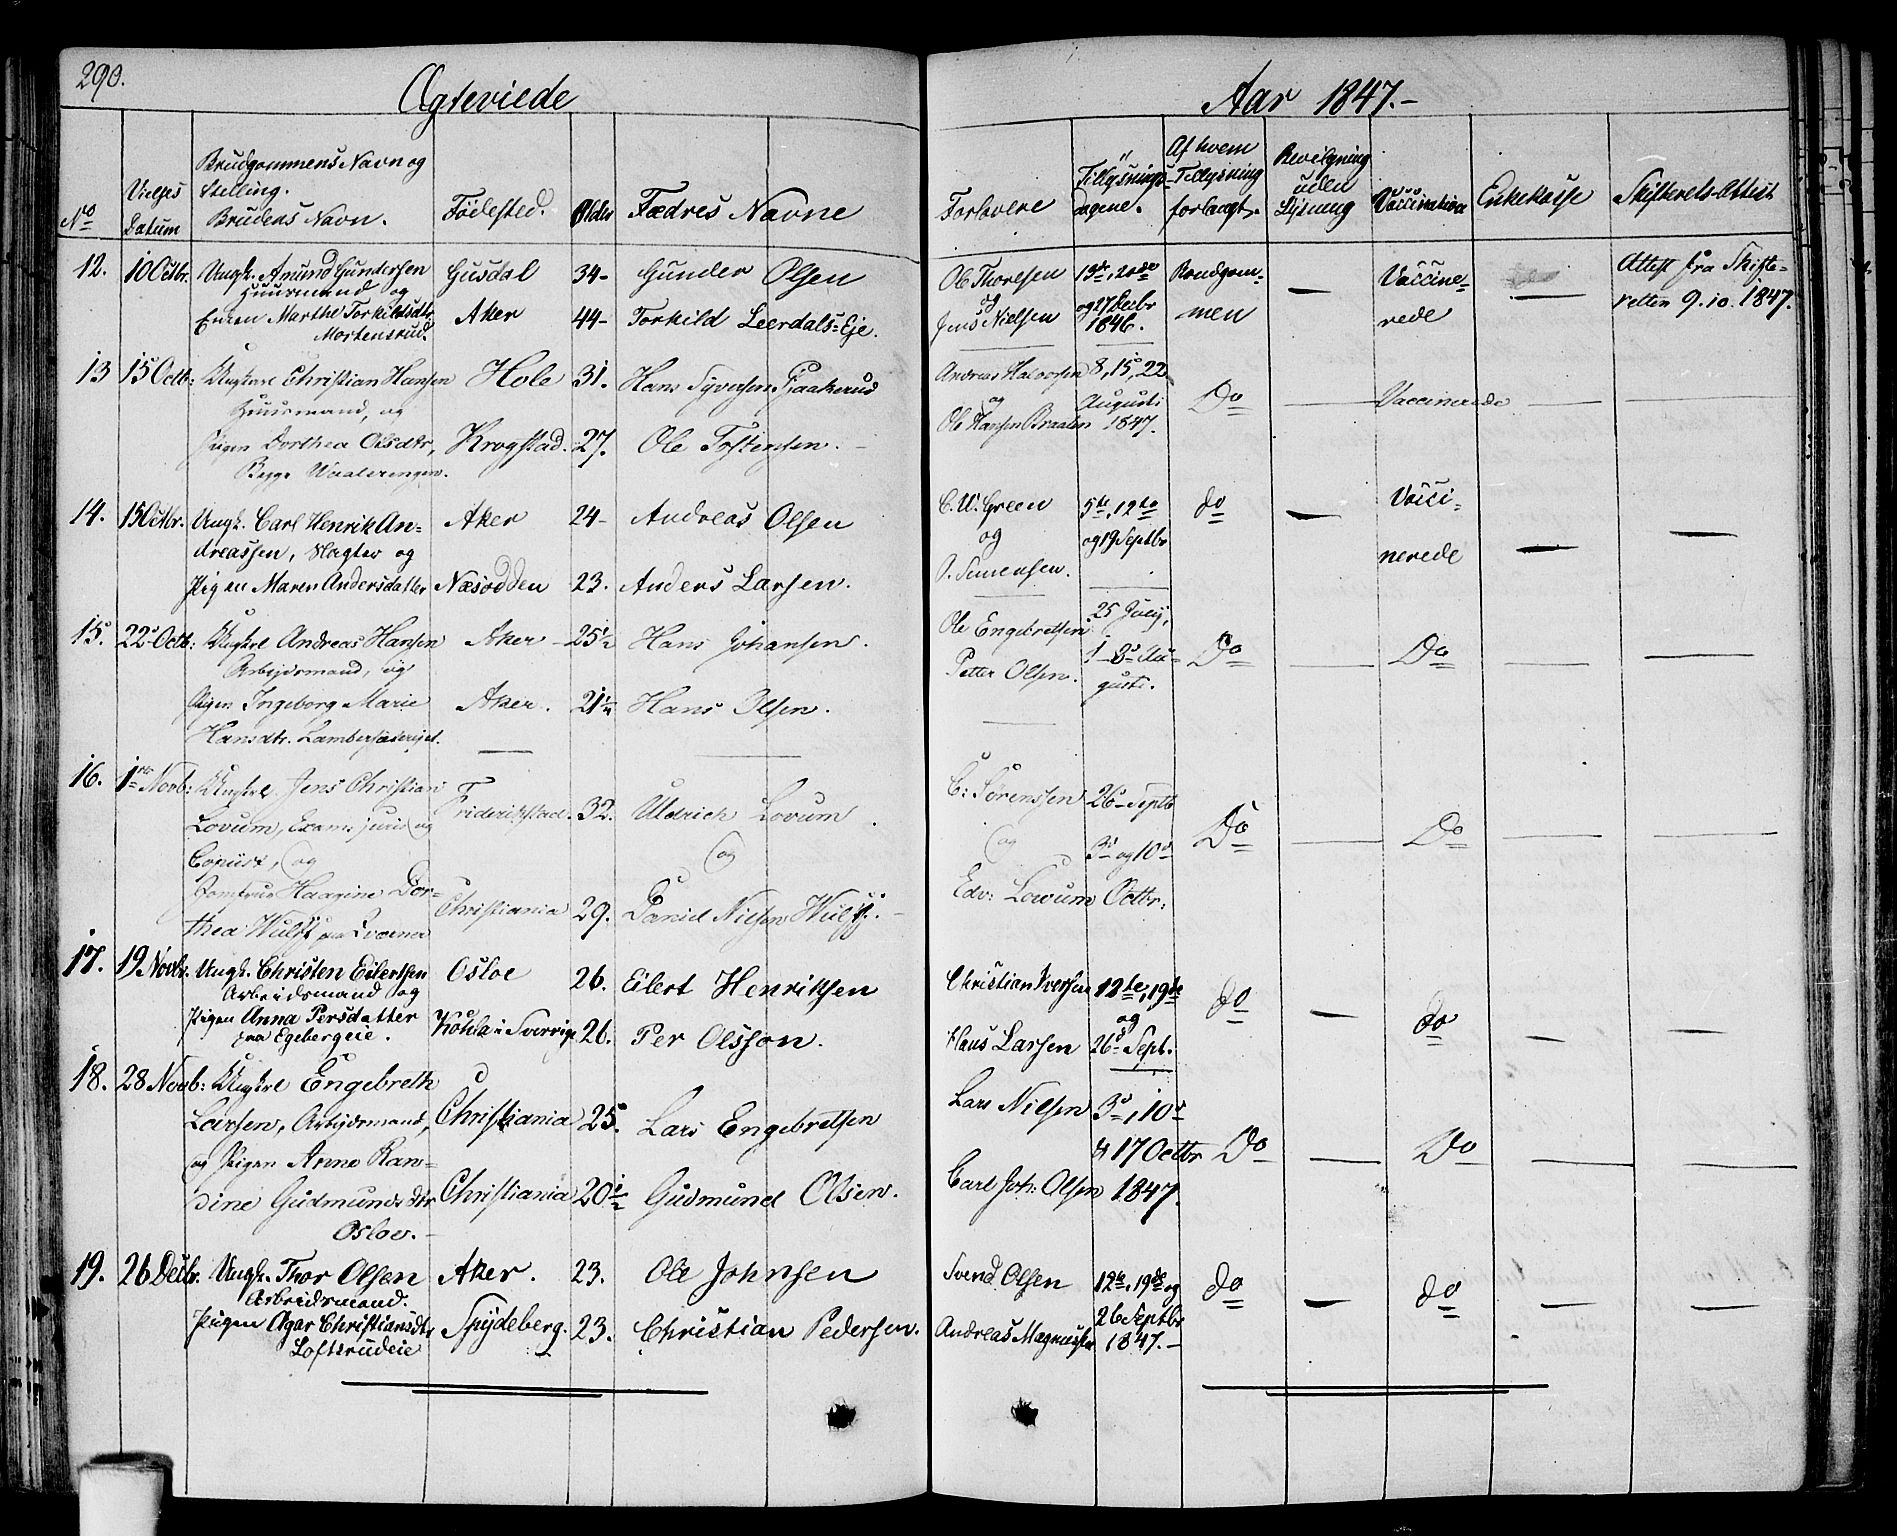 290.
Ægteviede
Aar 1847.-
No
Vielses Datum
Brudgommens Navn og Stilling. Brudens Navn.
Födested.
Alder
Fædres Navne
Forlovere
Tillysnings-dagene.
Af hvem Tillysning forlangt.
Bevilgning uden Lysning
Vaccination
Enkekasse
Skifterets-Attest
12. 10 Octbr. Ungk. Amund Gundersen Gusdal 34- Gunder Olsen
Huusmand og
Enken Marthe Torkildsdtr Aker 44- Torkild Leerdals=Eje.
Mortensrud.
Ole Thoresen 13de, 20de Brudgom- — Vaccine- — Attest fra Skifte-
og
Jens Nielsen og 27 Decbr 1846. men rede retten 9.10.1847.
13 15 Octb: Ungkarl Christian Hansen Hole 31. Hans Syversen
Huusmand, og
Pigen Dorthea Olsdtr, Krogstad. 27. Ole Tostensen.
Begge Vaalerengen.
Andreas Halvorsen 8, 15, 22 Do — Vaccinerede — —
og Augusti
Ole Hansen Braaten 1847.
14. 15 Octbr. Ungk. Carl Henrik An- Aker 24- Andreas Olsen
dreassen, Slagter og
Pigen Maren Andersdatter Næsodden 23. Anders Larsen.
C. W. Green 5te, 12te do — Vacci- — —
og og 19 Septbr nerede
P. Simensen.
15. 22 Octb: Ungkrl Andreas Hansen Aker 25½ Hans Johansen.
Arbeidsmand, og
Pigen Ingeborg Marie Aker. 21¼ Hans Olsen.
Hansdtr.
Ole Engebretsen 25 July, Do — Do — —
Petter Olsen. 1-8 Au-
gusti.
16. 1ste Novb: Ungkrl. Jens Christian Friderikstad. 32. Uldrich Lovum
Lovum, Exam: juris og (og
Copiist, (og
Jomfrue Haagine Dor- Christiania 29. Daniel Nielsen Wulff.
thea Wulff
C: Sörenssen 26 Septb Do — Do — —
(og 3 og 10de
Edv: Lovum Octbr:
17. 19 Novbr. Ungk. Christen Eilertsen Osloe 26. Eilert Henriksen
Arbeidsmand og
Pigen Anna Persdatter Kohla i Sverrige 26. Per Olsson.
paa Egebergeie.
Christian Iversen 12te, 19de do — do — —
og
Hans Larsen 26 Sept.
18. 28 Novb: Ungkrl Engebreth
Larsen, Arbejdsmand, Christiania 25. Lars Engebretsen
og Pigen Anne Ran-
dine Gudmundsdtr Christiania 20½ Gudmund Olsen.
Osloe.-
Lars Nielsen 3, 10
& 17 Octbr Do — Do — —
Carl Joh: Olsen 1847.
19. 26 Decbr. Ungk. Thor Olsen Aker. 23. Ole Johnsen
Arbeidsmand.
Pigen Agar Christiansdtr Spydeberg. 23. Christian Pedersen.
Loftsrudeie
Svend Olsen 12te, 19de og do — do — —
26 Septbr
Andreas Magnussen 1847.-